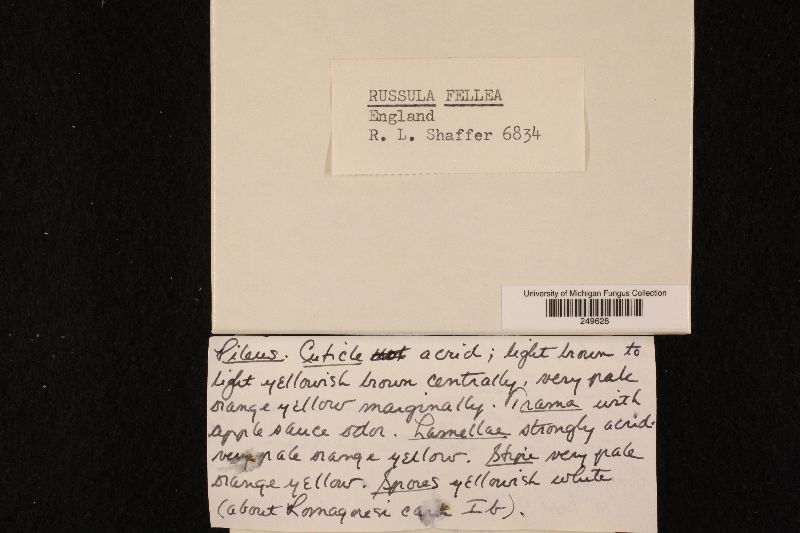 RUSSULA FELLEA
England
R. L. Shaffer 6834
University of Michigan Fungus Collection
249626
Pileus. Cuticle not acrid; light brown to
light yellowish brown centrally, very pale
orange yellow marginally. Trama with
apple sauce odor. Lamellae strongly acrid.
very pale orange yellow. Stipe very pale
orange yellow. Spores yellowish white
(about Romagnesi Ib).